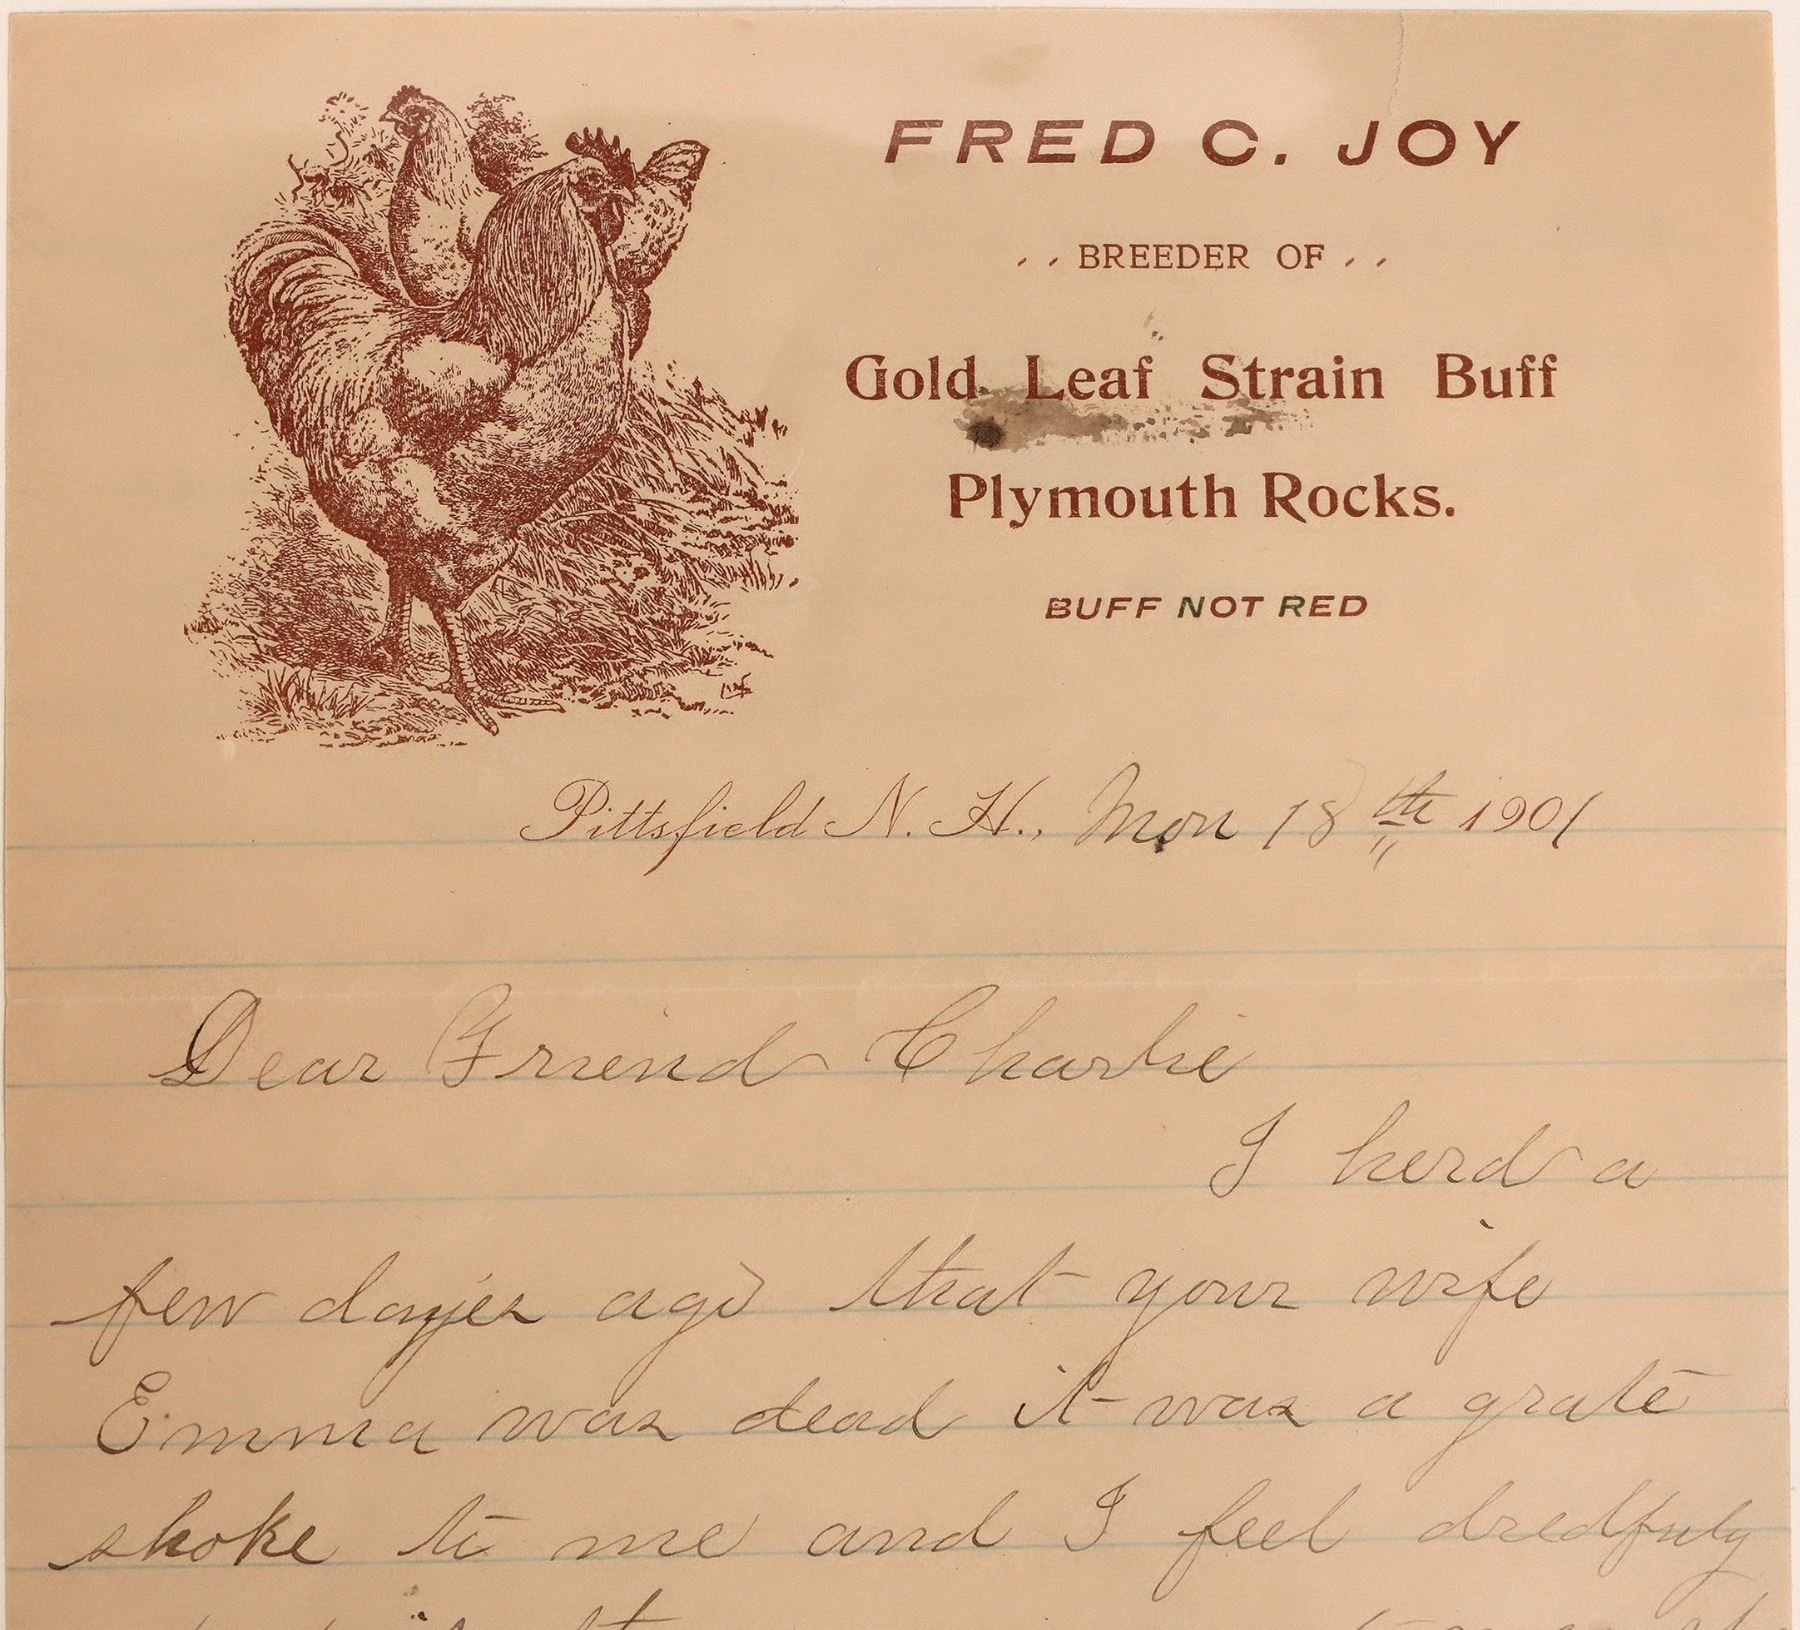 FRED C. JOY
. . BREEDER OF . .
Gold Leaf Strain Buff
Plymouth Rocks.
BUFF NOT RED
Pittsfield N. H., Mon 18th 1901
Dear Friend Charlie
I herd a
few dayes ago that your wife
Emma was dead it was a grate
shoke to me and I feel dredfuly